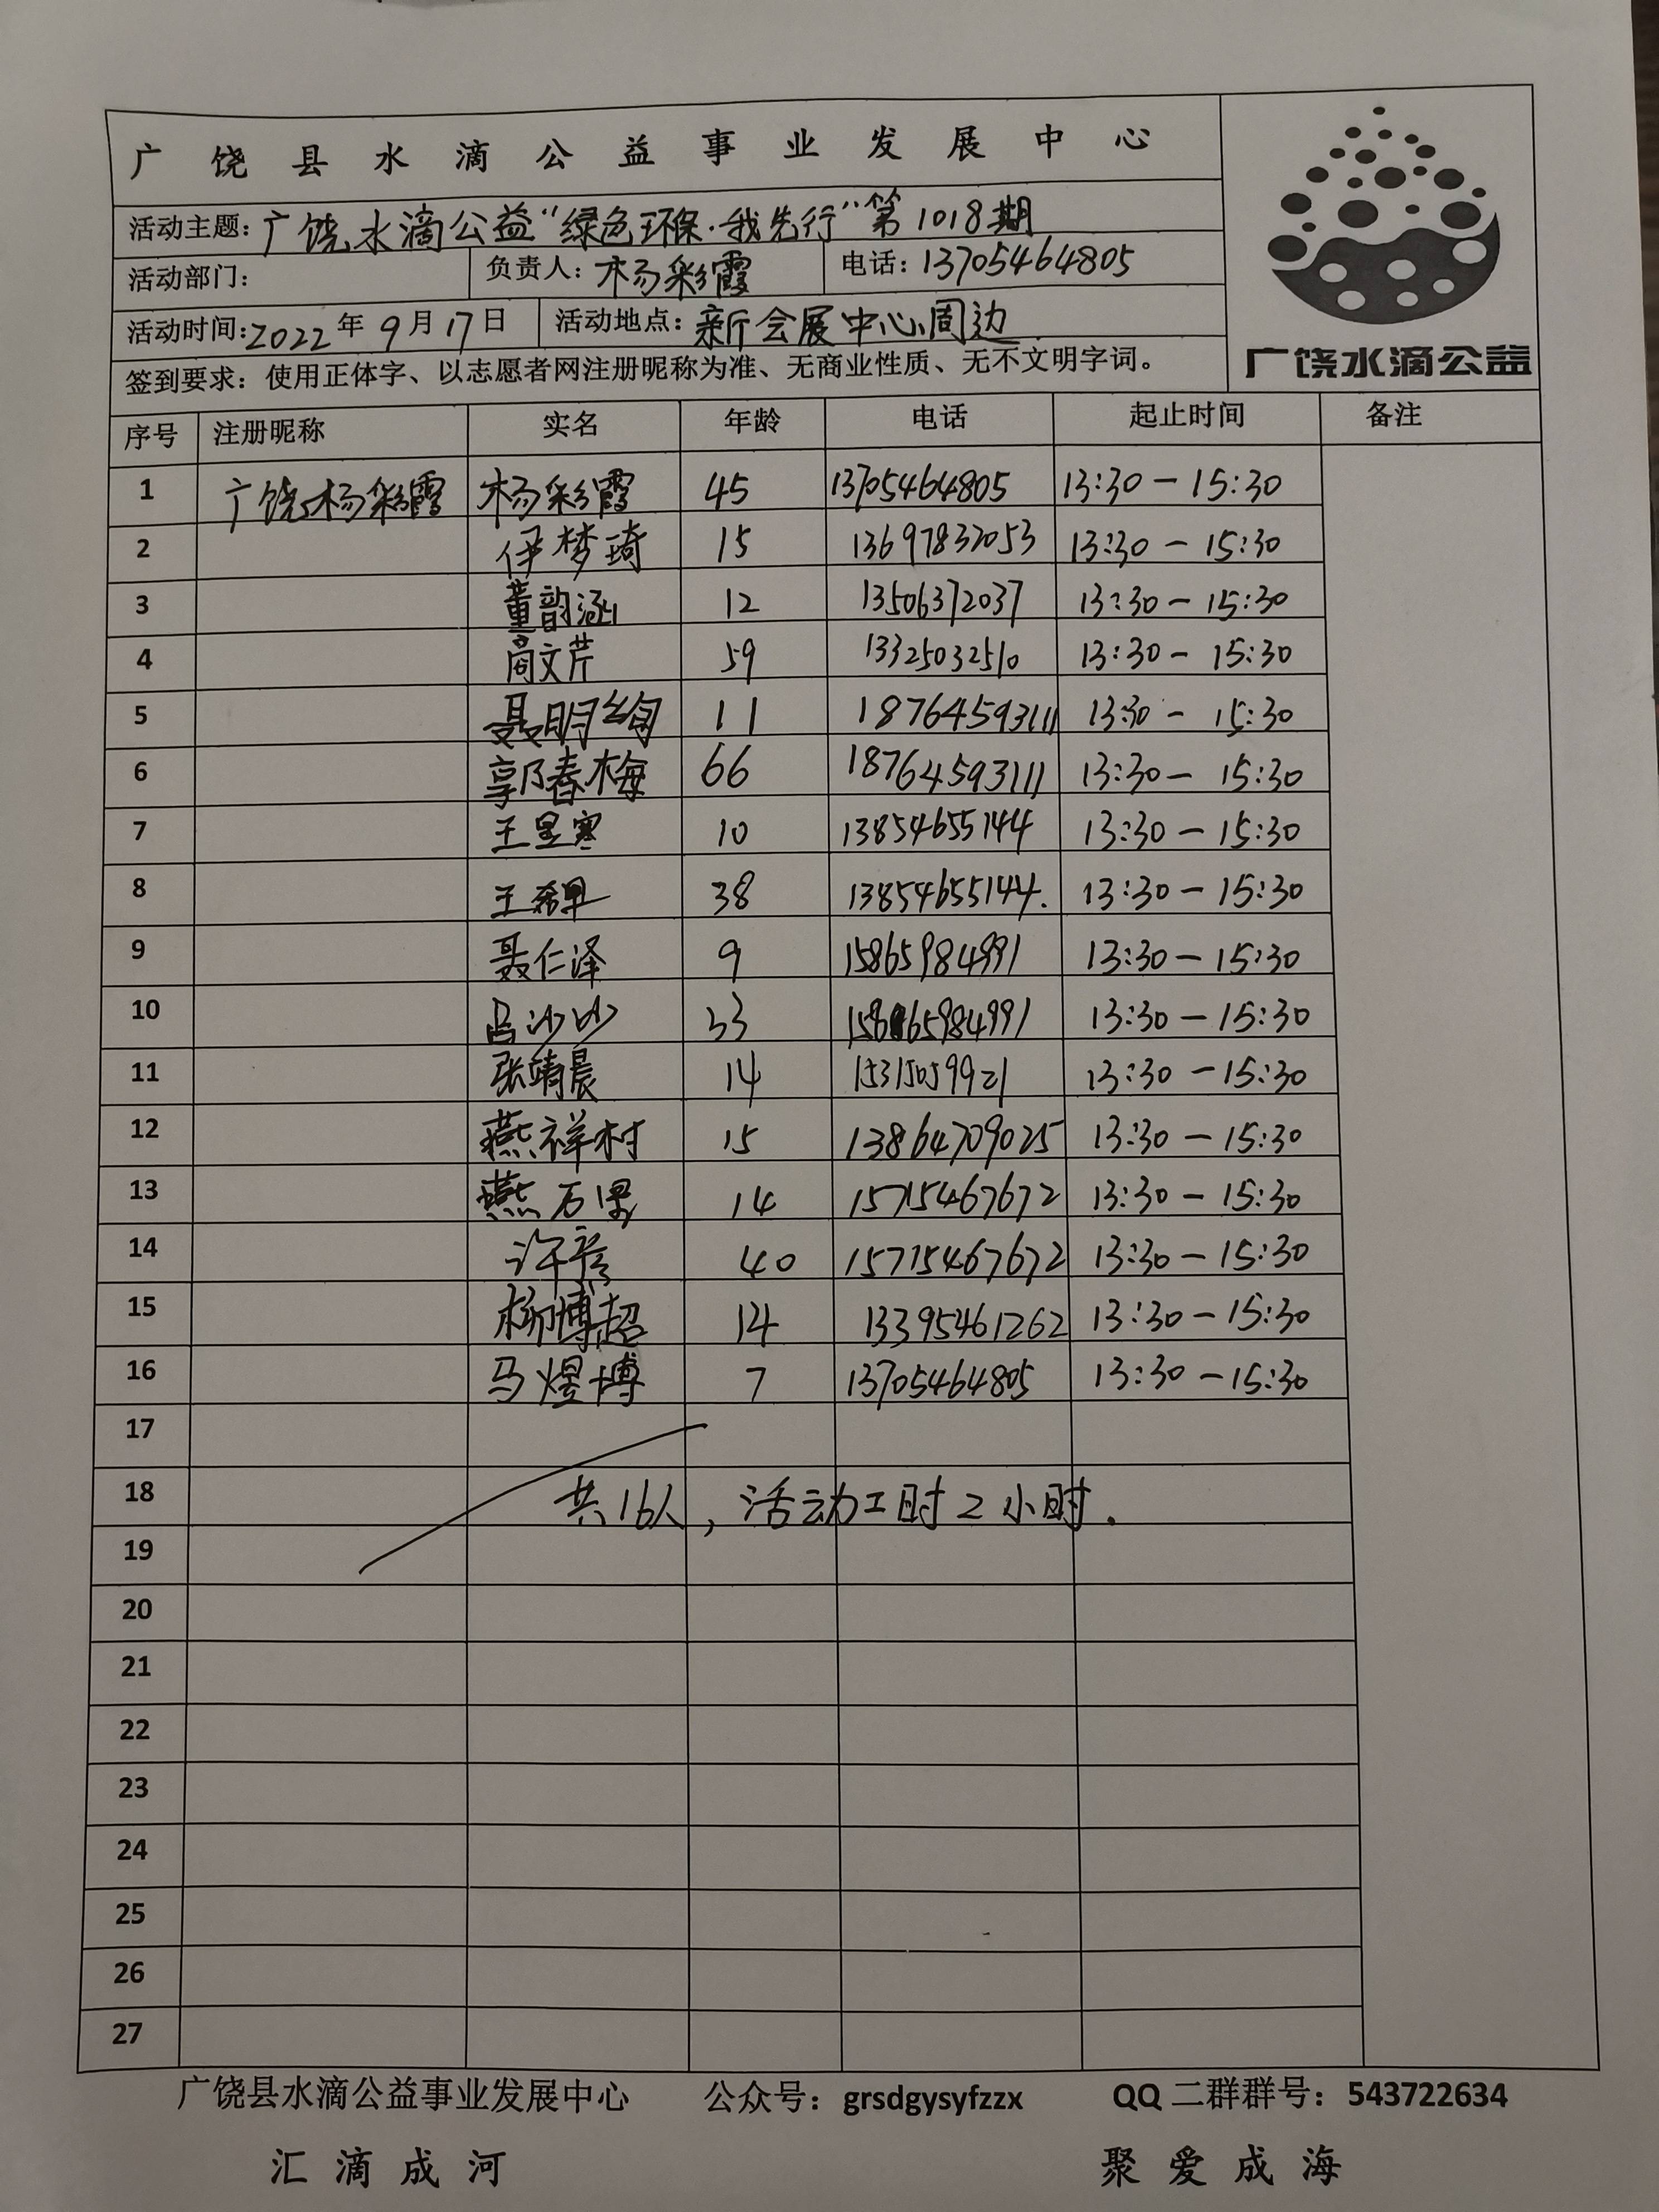 广饶县水滴公益事业发展中心
活动主题：广饶水滴公益“绿色环保·我先行”第1018期
活动部门： 负责人：杨彩霞 电话：13705464805
活动时间：2022年9月17日 活动地点：新会展中心周边
签到要求：使用正体字、以志愿者网注册昵称为准、无商业性质、无不文明字词。
广饶水滴公益
序号 注册昵称 实名 年龄 电话 起止时间 备注
1 广饶杨彩霞 杨彩霞 45 13705464805 13:30-15:30
2 伊梦琦 15 13697832053 13:30-15:30
3 董韵涵 12 13506372037 13:30-15:30
4 高文芹 59 13325032510 13:30-15:30
5 聂明绚 11 18764593111 13:30-15:30
6 郭春梅 66 18764593111 13:30-15:30
7 王昱寒 10 13854655144 13:30-15:30
8 王 38 13854655144. 13:30-15:30
9 聂仁泽 9 15865984991 13:30-15:30
10 吕沙沙 33 15865984991 13:30-15:30
11 张靖晨 14 15315059921 13:30-15:30
12 燕祥村 15 13864709025 13:30-15:30
13 燕石 14 15715467672 13:30-15:30
14 许彦 40 15715467672 13:30-15:30
15 杨博超 14 13395461262 13:30-15:30
16 马煜博 7 13705464805 13:30-15:30
17
18 共16人，活动工时2小时.
19
20
21
22
23
24
25
26
27
广饶县水滴公益事业发展中心 公众号：grsdgysyfzzx QQ二群群号：543722634
汇滴成河 聚爱成海